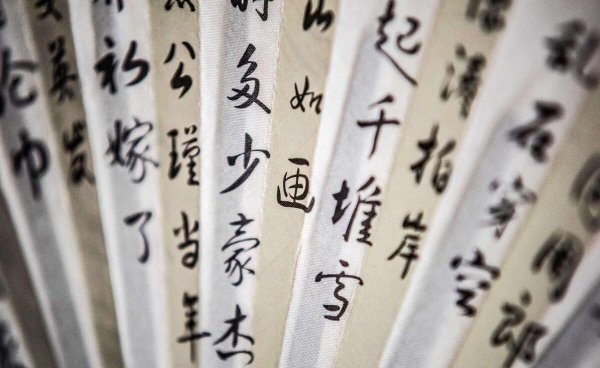 国周郎
乱石穿空
涛拍岸
起千堆雪
山如画
时多少豪杰
公瑾当年
初嫁了
英发
纶巾